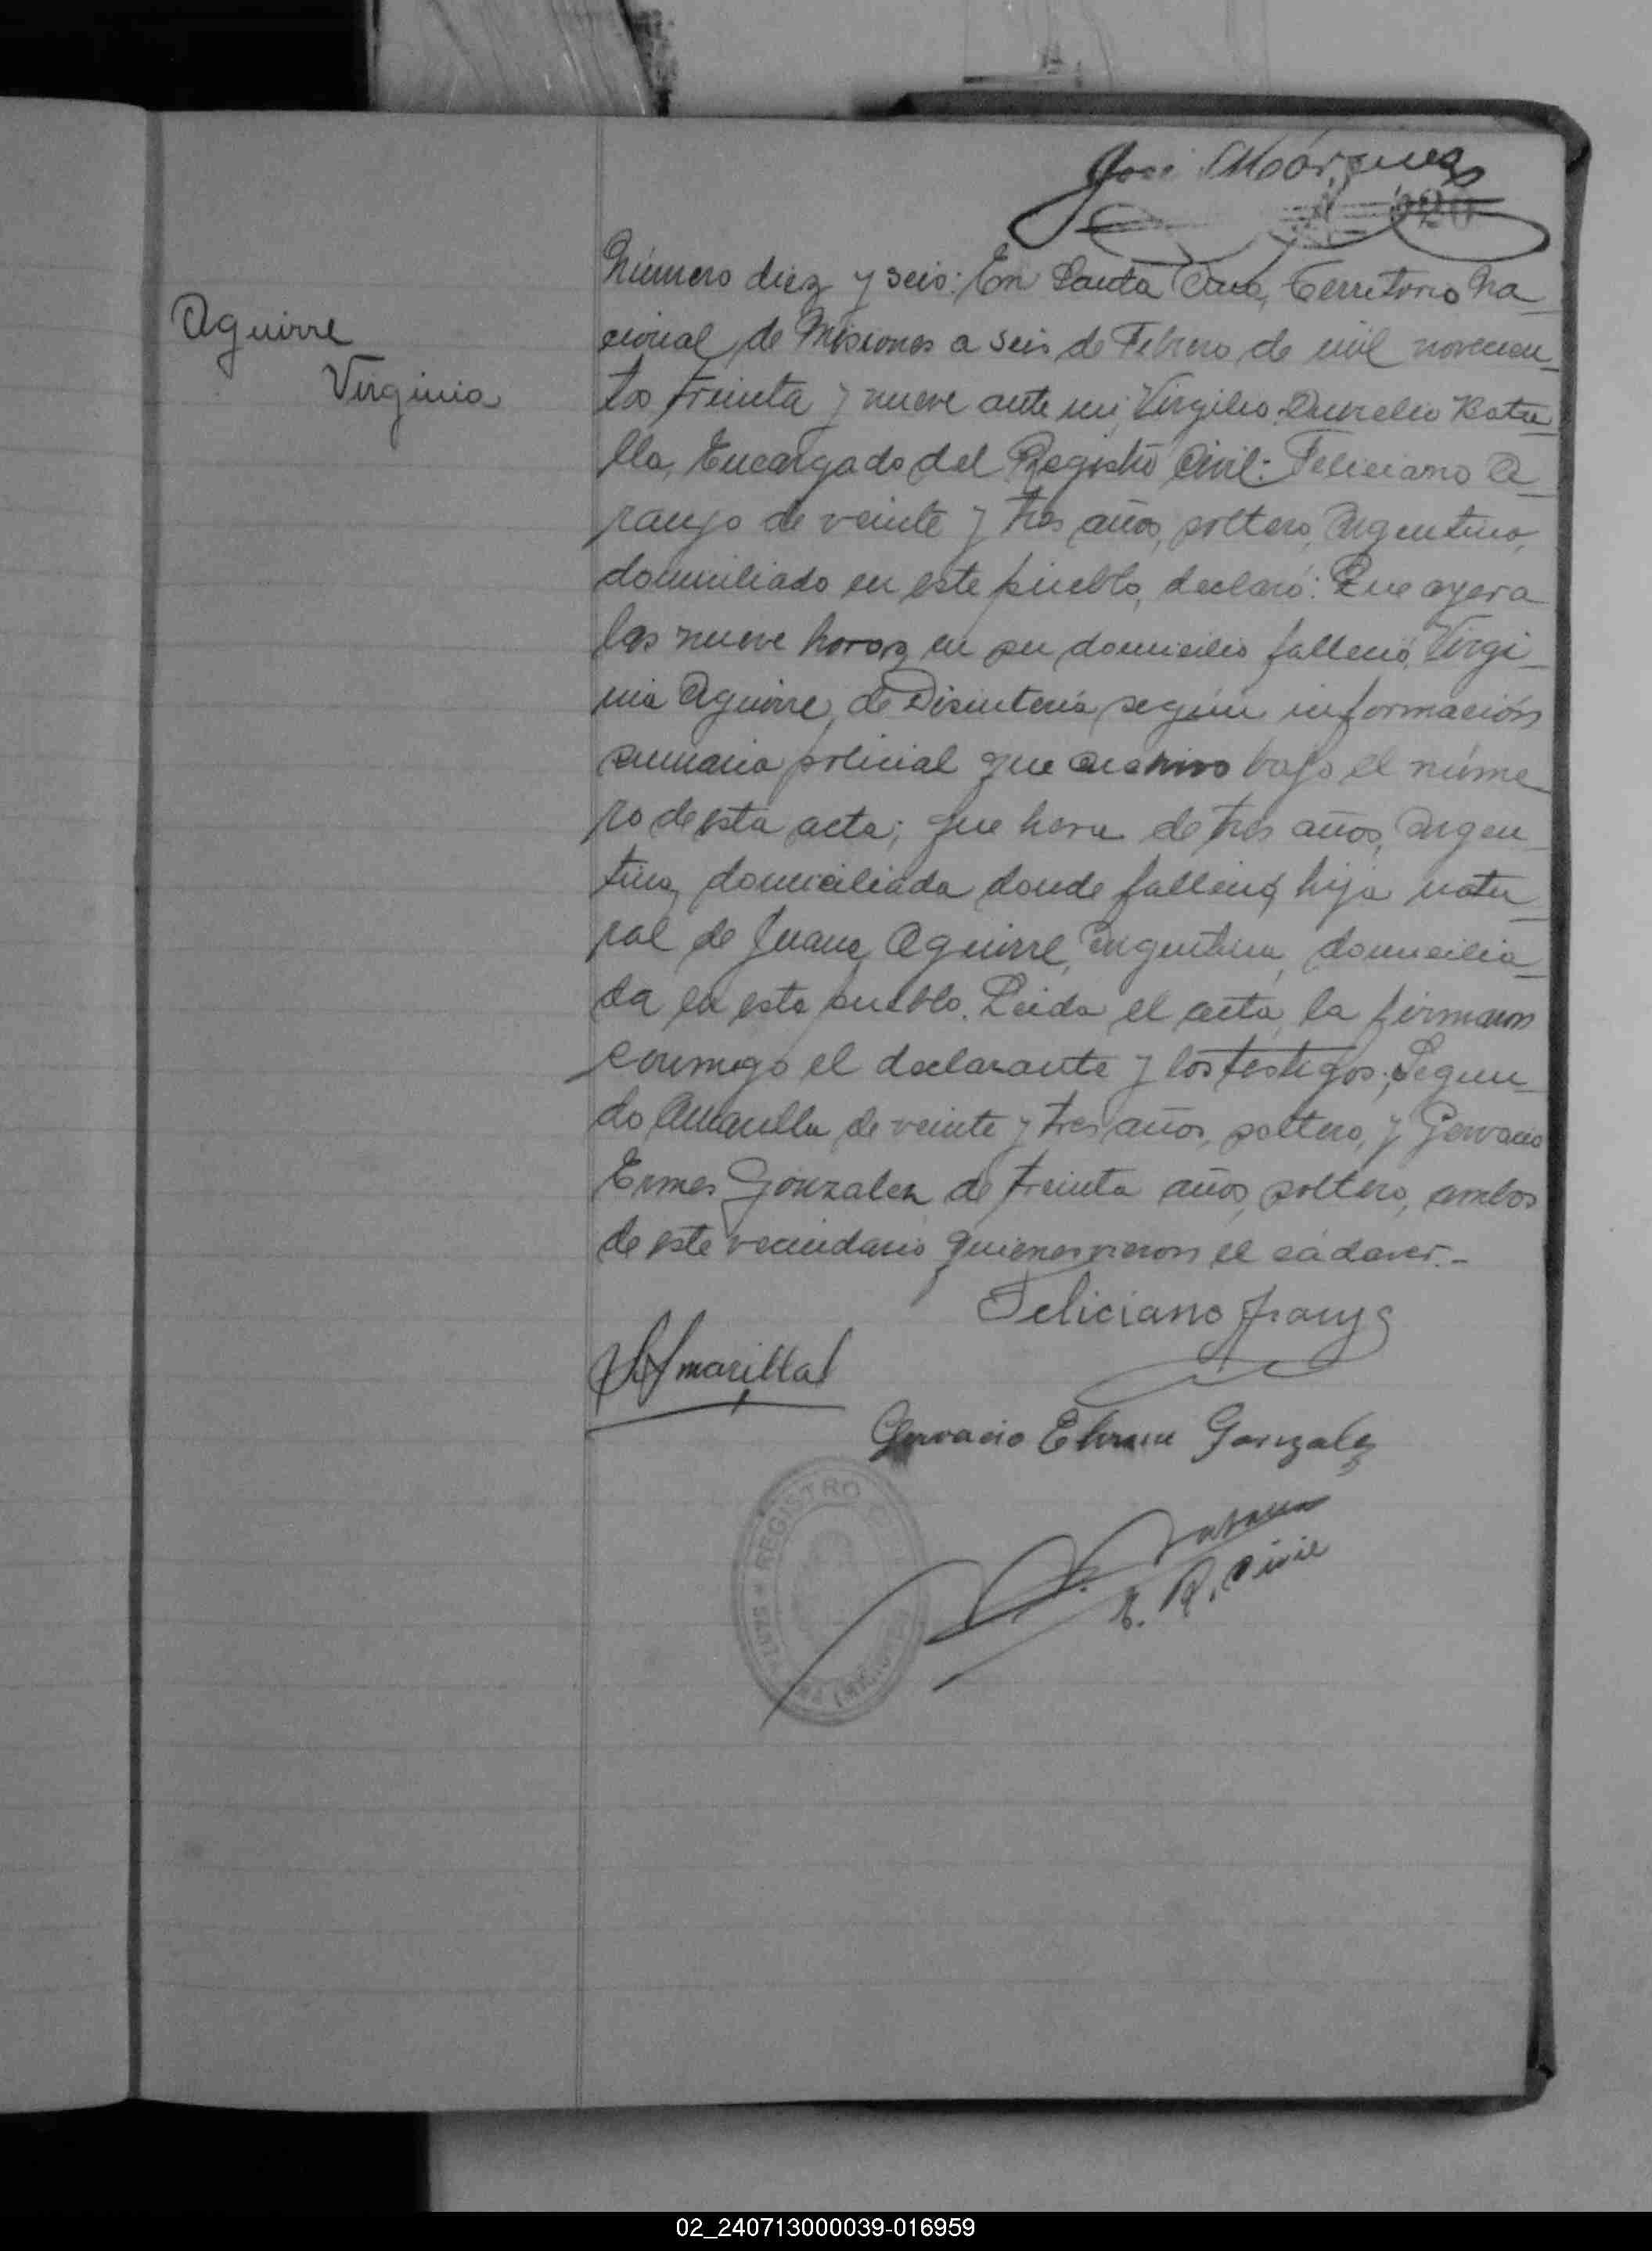 José Márquez
020
Aguirre
Virginia
Número diez y seis: En Santa Ana, Territorio Na_
cional de Misiones a seis de Febrero de mil novecien_
tos treinta y nueve ante mi, Virgilio Aurelio
lla, Encargado del Registro Civil: Feliciano A_
raujo de veinte y tres años, soltero, Argentino,
domiciliado en este pueblo, declaró: Que ayer a
las nueve horas en su domicilio falleció Virgi_
nia Aguirre, de Disintería según información
sumaria policial que archivo bajo el núme_
ro de esta acta; que hera de tres años, Argen_
tina, domiciliada donde falleció, hija natu_
ral de Juana Aguirre, argentina, domicilia_
da en este pueblo. Leida el acta, la firmaron
conmigo el declarante y los testigos; Segun_
do Amarilla de veinte y tres años, soltero, y Gervacio
Ermes Gonzalez de treinta años, soltero, ambos
de este vecindario quienes vieron el cádaver.-
Feliciano Araujo
S Amarilla
Gervacio Gonzalez
E. R. Civil
REGISTRO CIVIL
SANTA ANA (MISIONES)
02_240713000039-016959